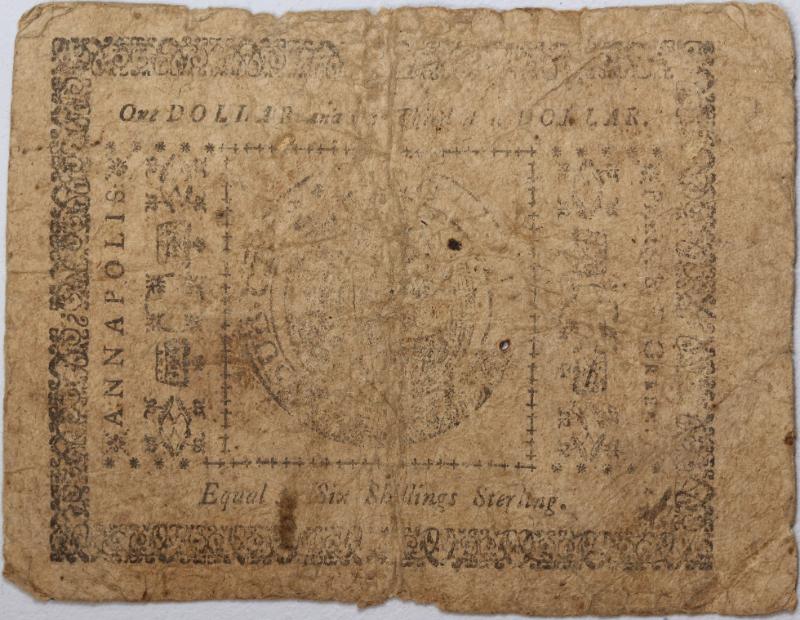 One DOLLAR and a Third of a DOLLAR.
ANNAPOLIS
GREEN.
Equal Six Shillings Sterling.